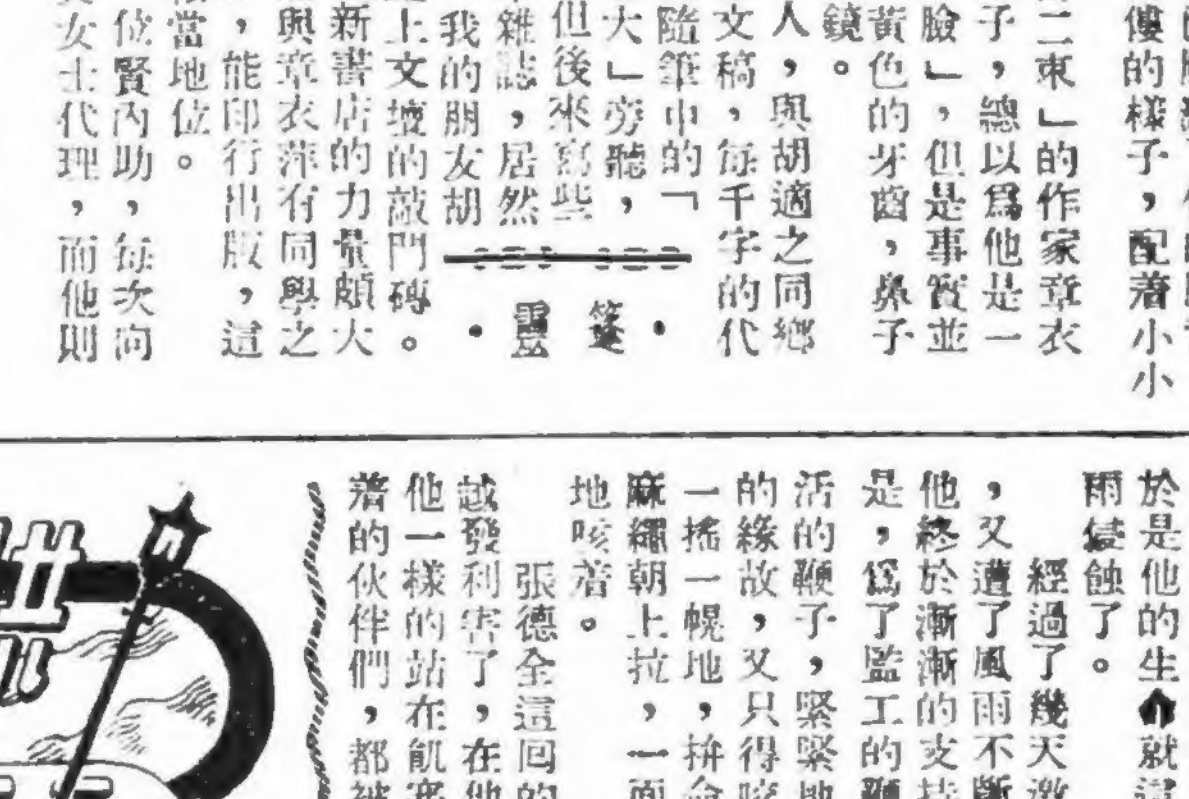 傻的樣子，配着小小
二束」的作家章衣
子，總以爲他是一
臉」，但是事實並
黃色的牙齒，鼻子
鏡。
人，與胡適之同鄉
文稿，每千字的代
隨筆中的「
大」旁聽，
但後來寫些
雜誌，居然
我的朋友胡
上文壇的敲門磚。
新書店的力量頗大
與章衣萍有同學之
，能印行出版，這
當地位。
位賢內助，每次向
女士代理，而他則
箋
靈
於是他的生命就這
雨侵蝕了。
經過了幾天激
，又遭了風雨不斷
他終於漸漸的支持
是，爲了監工的鞭
活的鞭子，緊緊地
的緣故，又只得
一搖一幌地，拚命
麻繩朝上拉，一面
地咳着。
張德全這回的
越發利害了，在他
他一樣的站在飢寒
着的伙伴們，都被